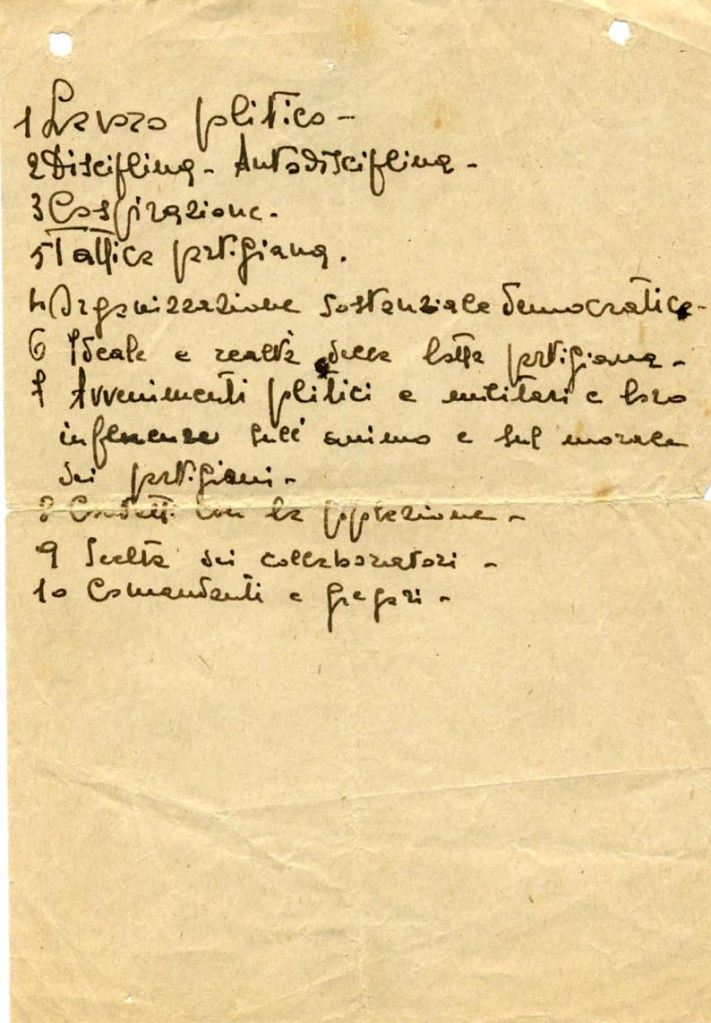 1 Lavoro politico -
2 Disciplina - Autodisciplina -
3 Cospirazione.
5 Tattica partigiana.
4 Organizzazione sostanziale democratica -
6 Ideale e realtà della lotta partigiana -
7 Avvenimenti politici e militari e loro
influenze sull'animo e sul morale
dei partigiani -
8 con la popolazione -
9 Scelta dei collaboratori -
10 Comandanti e gregari -